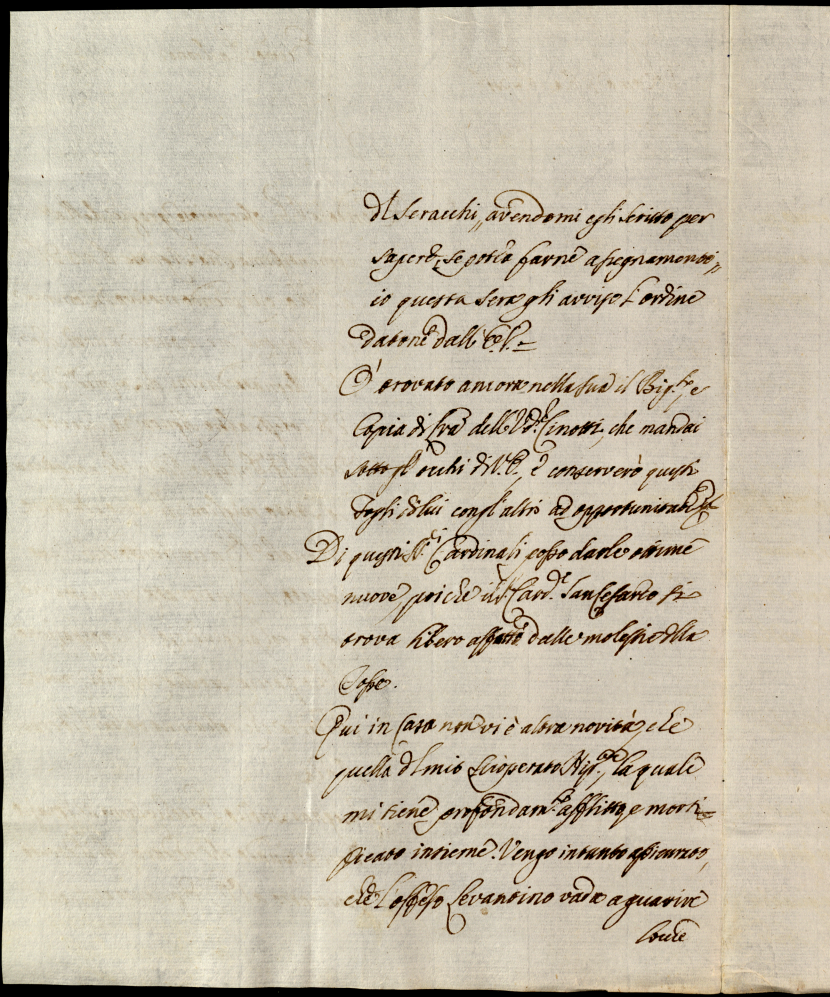 del Seracchi, avendomi egli scritto per
sapere, se potea farne assegnamento,
io questa sera gli avviso l'ordine
datone dall' E. V.
O' trovato ancora nella sua il Bigl.to, e
Copia di lra dell' Cinotti, che mandai
sotto gl' occhi di V. E., e conserverò questi
fogli di lui con gl' altri ad opportunità
Di questi SS.ri Cardinali posso darle ottime
nuove, poiché il S. Card.e Sancesareo si
trova libero affatto dalle molestie della
Tosse.
Qui in Casa non vi è altra novità, che
quella del mio scioperato Nip.te, la quale
mi tiene profondam.te afflitto, e morti=
ficato insieme. Vengo intanto assicurato,
che l'offeso Levantino vada a guarire